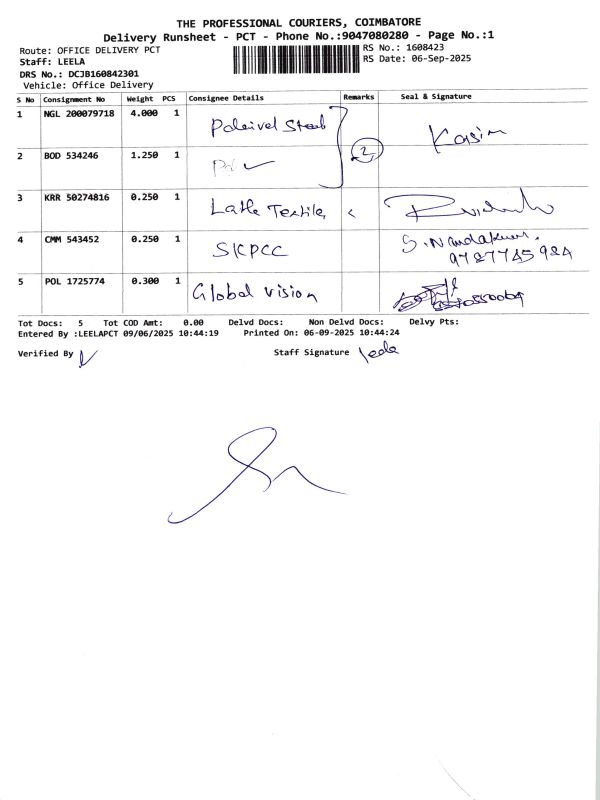 THE PROFESSIONAL COURIERS, COIMBATORE
Delivery Runsheet - PCT - Phone No.:9047080280 - Page No.:1
Route: OFFICE DELIVERY PCT RS No.: 1608423
Staff: LEELA RS Date: 06-Sep-2025
DRS No.: DCJB160842301
Vehicle: Office Delivery
S No Consignment No Weight PCS Consignee Details Remarks Seal & Signature
1 NGL 200079718 4.000 1 2 Kasim
2 BOD 534246 1.250 1
3 KRR 50274816 0.250 1 Textile
4 CMM 543452 0.250 1 SKPCC
9787745984
5 POL 1725774 0.300 1 Global vision
Tot Docs: 5 Tot COD Amt: 0.00 Delvd Docs: Non Delvd Docs: Delvy Pts:
Entered By :LEELAPCT 09/06/2025 10:44:19 Printed On: 06-09-2025 10:44:24
Verified By Staff Signature leela